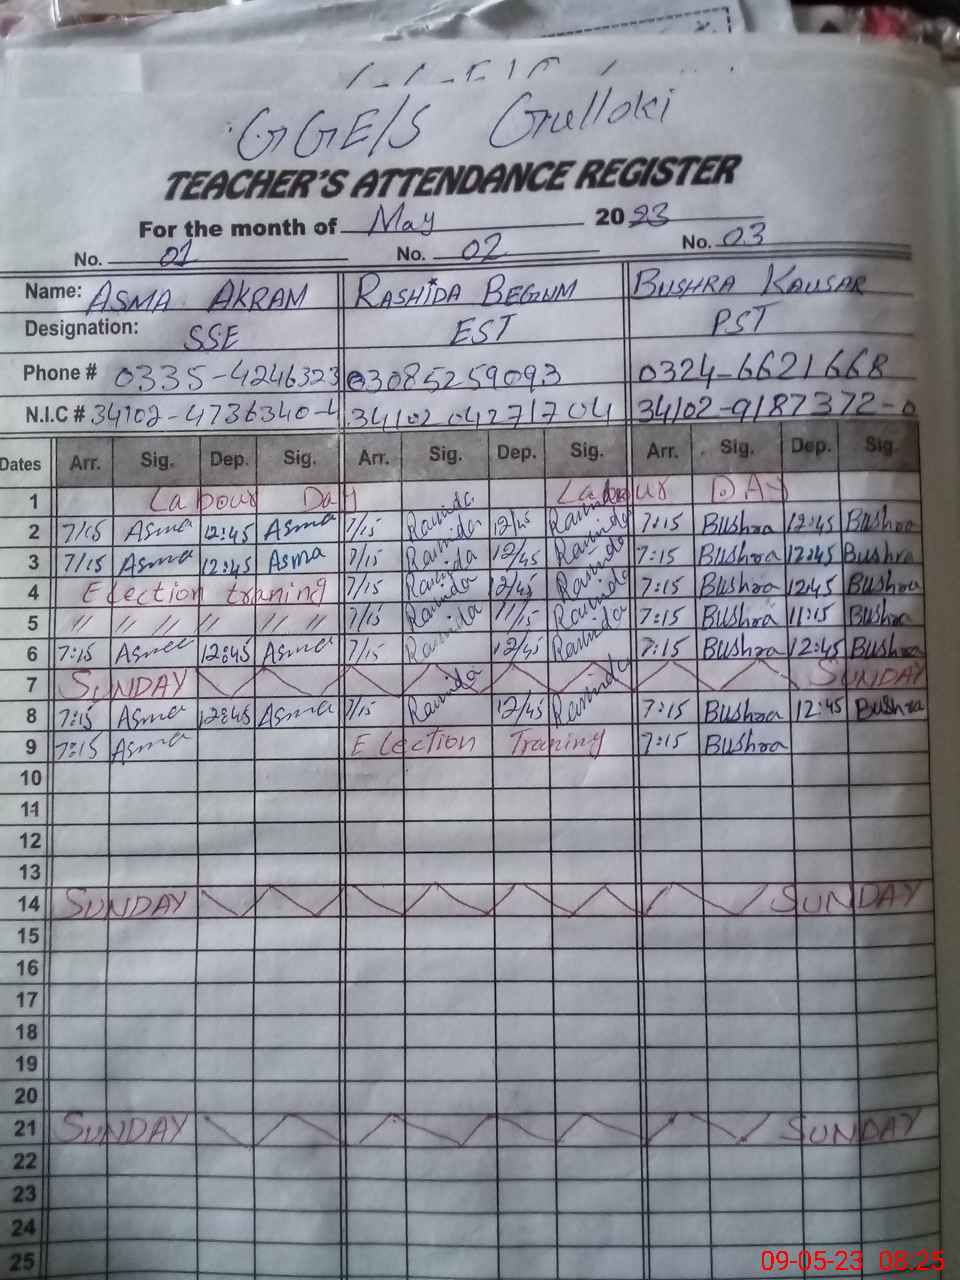 GGE/S Gulloki
TEACHER'S ATTENDANCE REGISTER
For the month of May 2023
No. 01 No. 02 No. 03
Name: ASMA AKRAM RASHIDA BEGUM BUSHRA KAUSAR
Designation: SSE EST PST
Phone # 0335-4246323 03085259093 0324-6621668
N.I.C # 34102-4736340-4 34102 04271704 34102-9187372-0
Dates Arr. Sig. Dep. Sig. Arr. Sig. Dep. Sig. Arr. Sig. Dep. Sig.
1 Labour Day Labour DAY
2 7/15 Asma 12:45 Asma 7/15 12/45 7:15 Bushra 12:45 Bushra
3 7/15 Asma 12:45 Asma 7/15 12/45 7:15 Bushra 12:45 Bushra
4 Election traning 7/15 12/45 7:15 Bushra 12:45 Bushra
5 " " " " " " " 7/15 11/15 7:15 Bushra 11:15 Bushra
6 7:15 Asma 12:45 Asma 7/15 12/45 7:15 Bushra 12:45 Bushra
7 SUNDAY SUNDAY
8 7:15 Asma 12:45 Asma 7/15 12/45 7:15 Bushra 12:45 Bushra
9 7:15 Asma Election Traning 7:15 Bushra
10
11
12
13
14 SUNDAY SUNDAY
15
16
17
18
19
20
21 SUNDAY SUNDAY
22
23
24
25
09-05-23 08:25